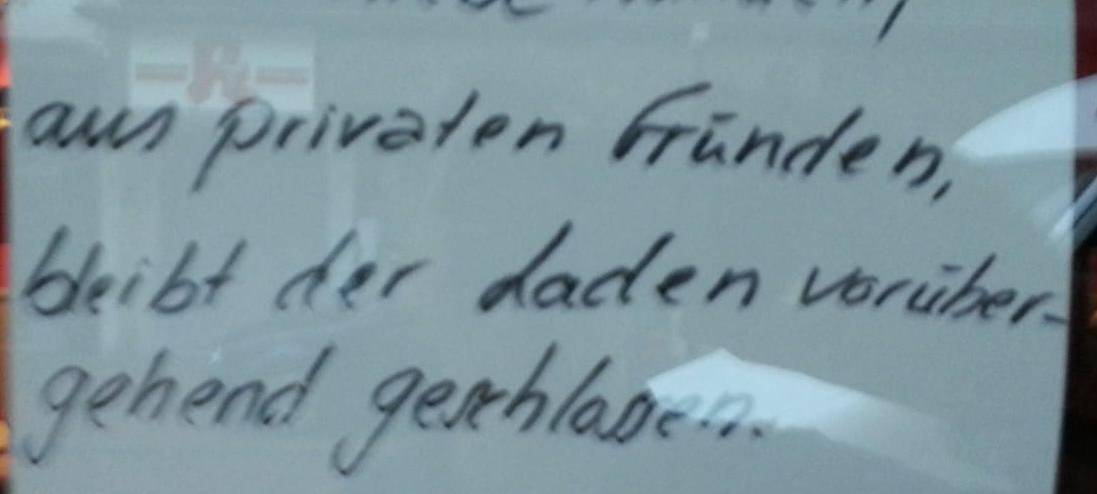 aus privaten Gründen,
bleibt der Laden vorüber-
gehend geschlossen.